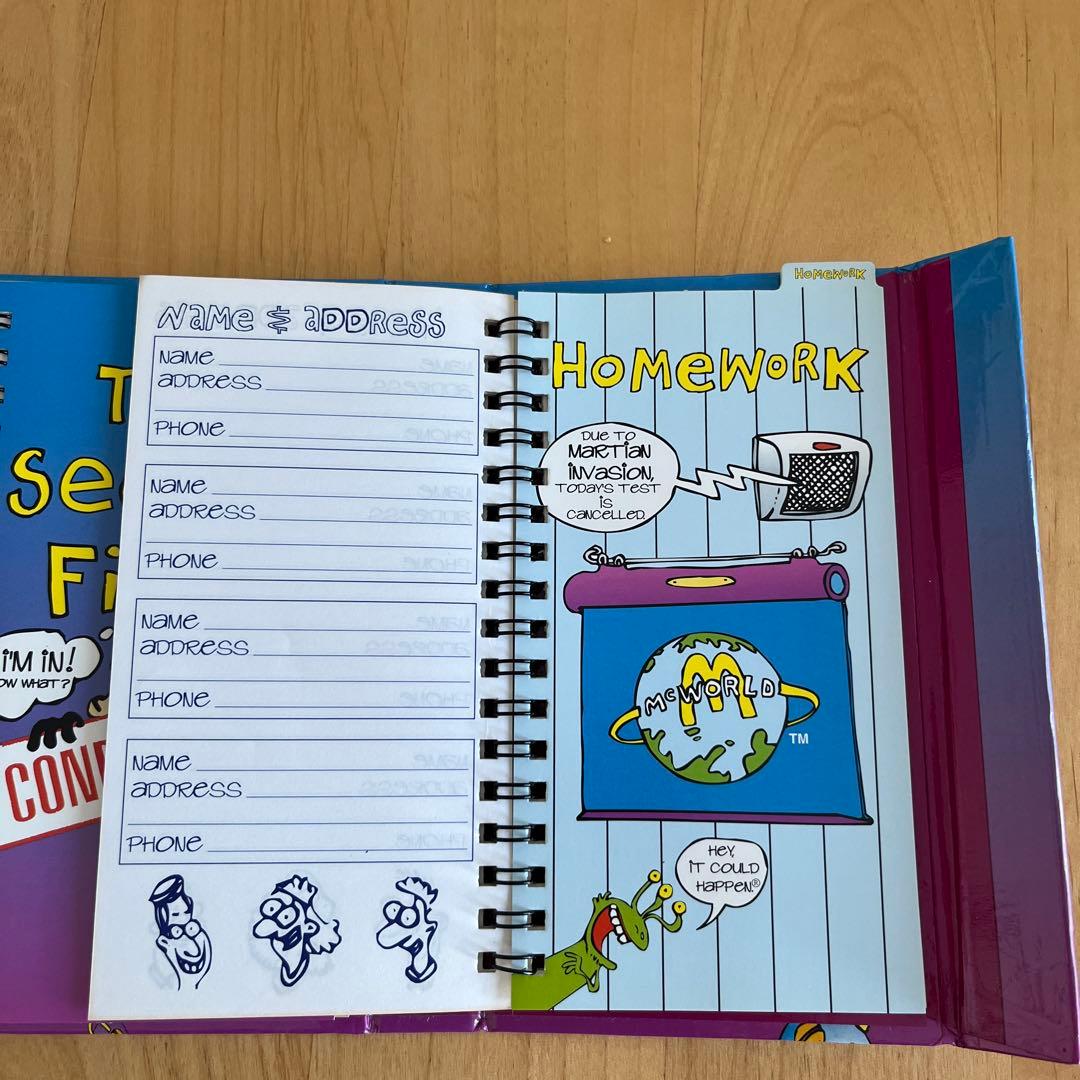 I'M IN!
CON
NAME & ADDRESS
NAME
ADDRESS
PHONE
NAME
ADDRESS
PHONE
NAME
ADDRESS
PHONE
NAME
ADDRESS
PHONE
HOMEWORK
HOMEWORK
DUE TO
MARTIAN
INVASION,
TODAY'S TEST
IS
CANCELLED.
M
McWORLD
TM
HEY,
IT COULD
HAPPEN®